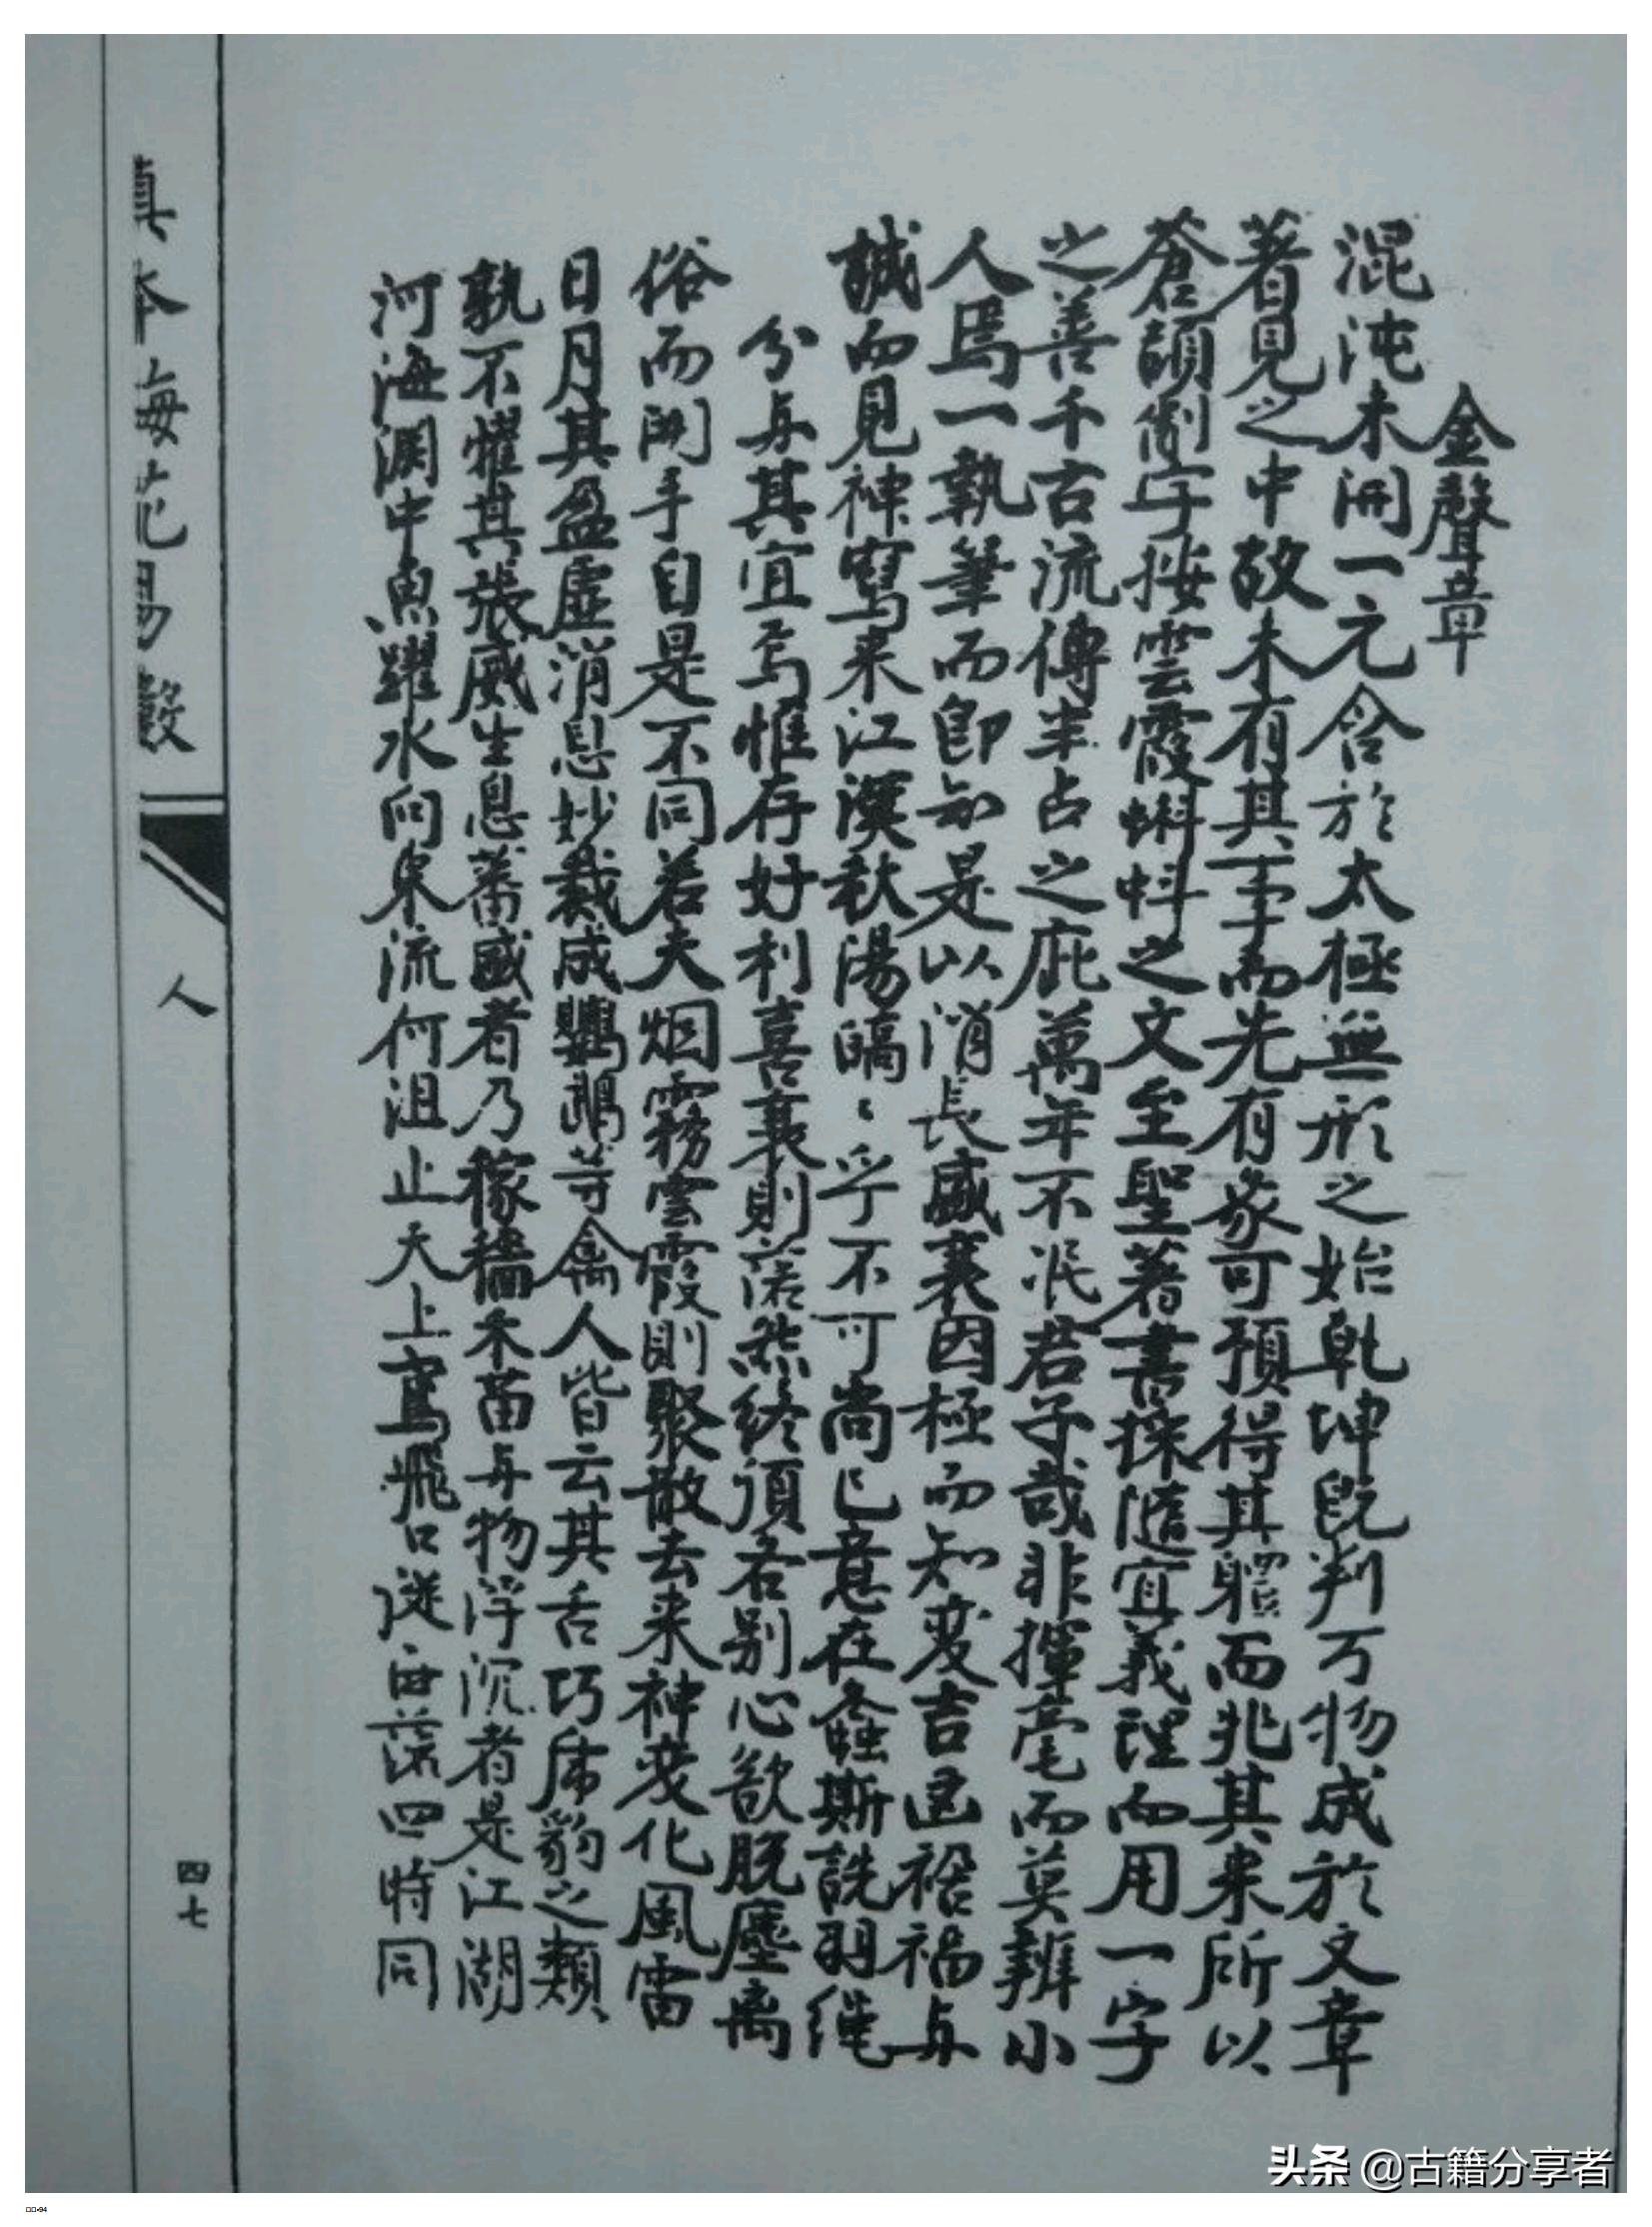 金聲章
混沌未開一元含於太極無形之始乾坤既判万物成於文章
著見之中故未有其事而先有象可預得其軆而兆其来所以
蒼頡制字按雲霞蝌蚪之文至聖著書探隨宜義理而用一字
之善千古流傳半占之庇萬年不泯君子哉非揮毫而莫辨小
人焉一執筆而卽知是以消長盛衰因極而知变吉凶禍与
誠而見神寫来江漢秋湯皜皜乎不可尚已意在螽斯詵羽绳
分与其宜焉惟存好利喜衰則落然終須各别心欲脱塵离
俗而開手自是不同若夫烟霧雲霞則聚散去来神变化風雷
日月其盈虛消息妙裁成鸚鵡等禽人皆云其舌巧虎豹之類
孰不懼其張威生息蕃盛者乃稼穡禾苗与物浮沉者是江湖
河海淵中魚躍水向東流何沮止天上鳶飛口從西落四時同
真本梅花易數
人
四七
头条 @古籍分享者
94